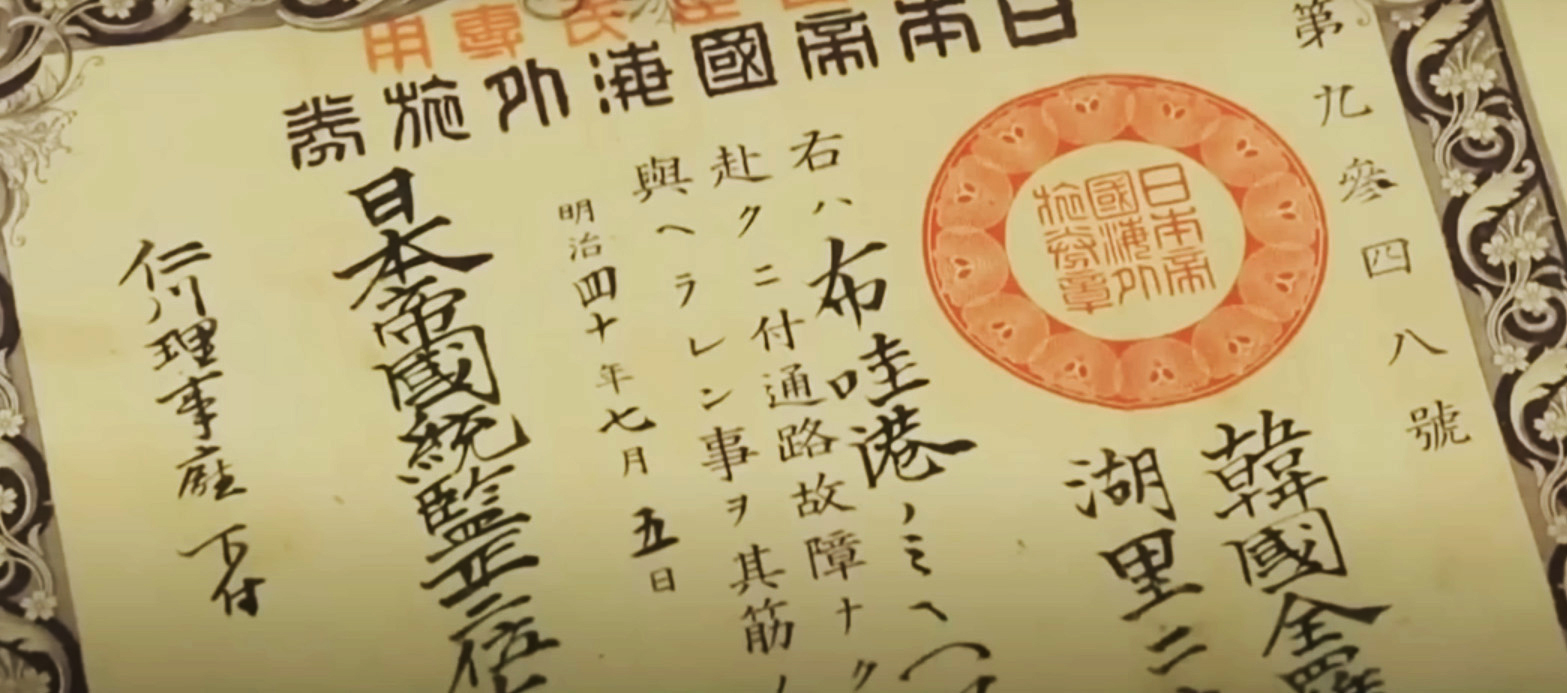 民專用
日本帝國海外旅券
第九參四八號
日本帝
國海外
旅券章
韓國全羅
湖里二
右ハ布哇港ノミヘ
赴クニ付通路故障ナク
與ヘラレン事ヲ其筋ノ
明治四十年七月五日
日本帝國統監正二位
仁川理事廳下付